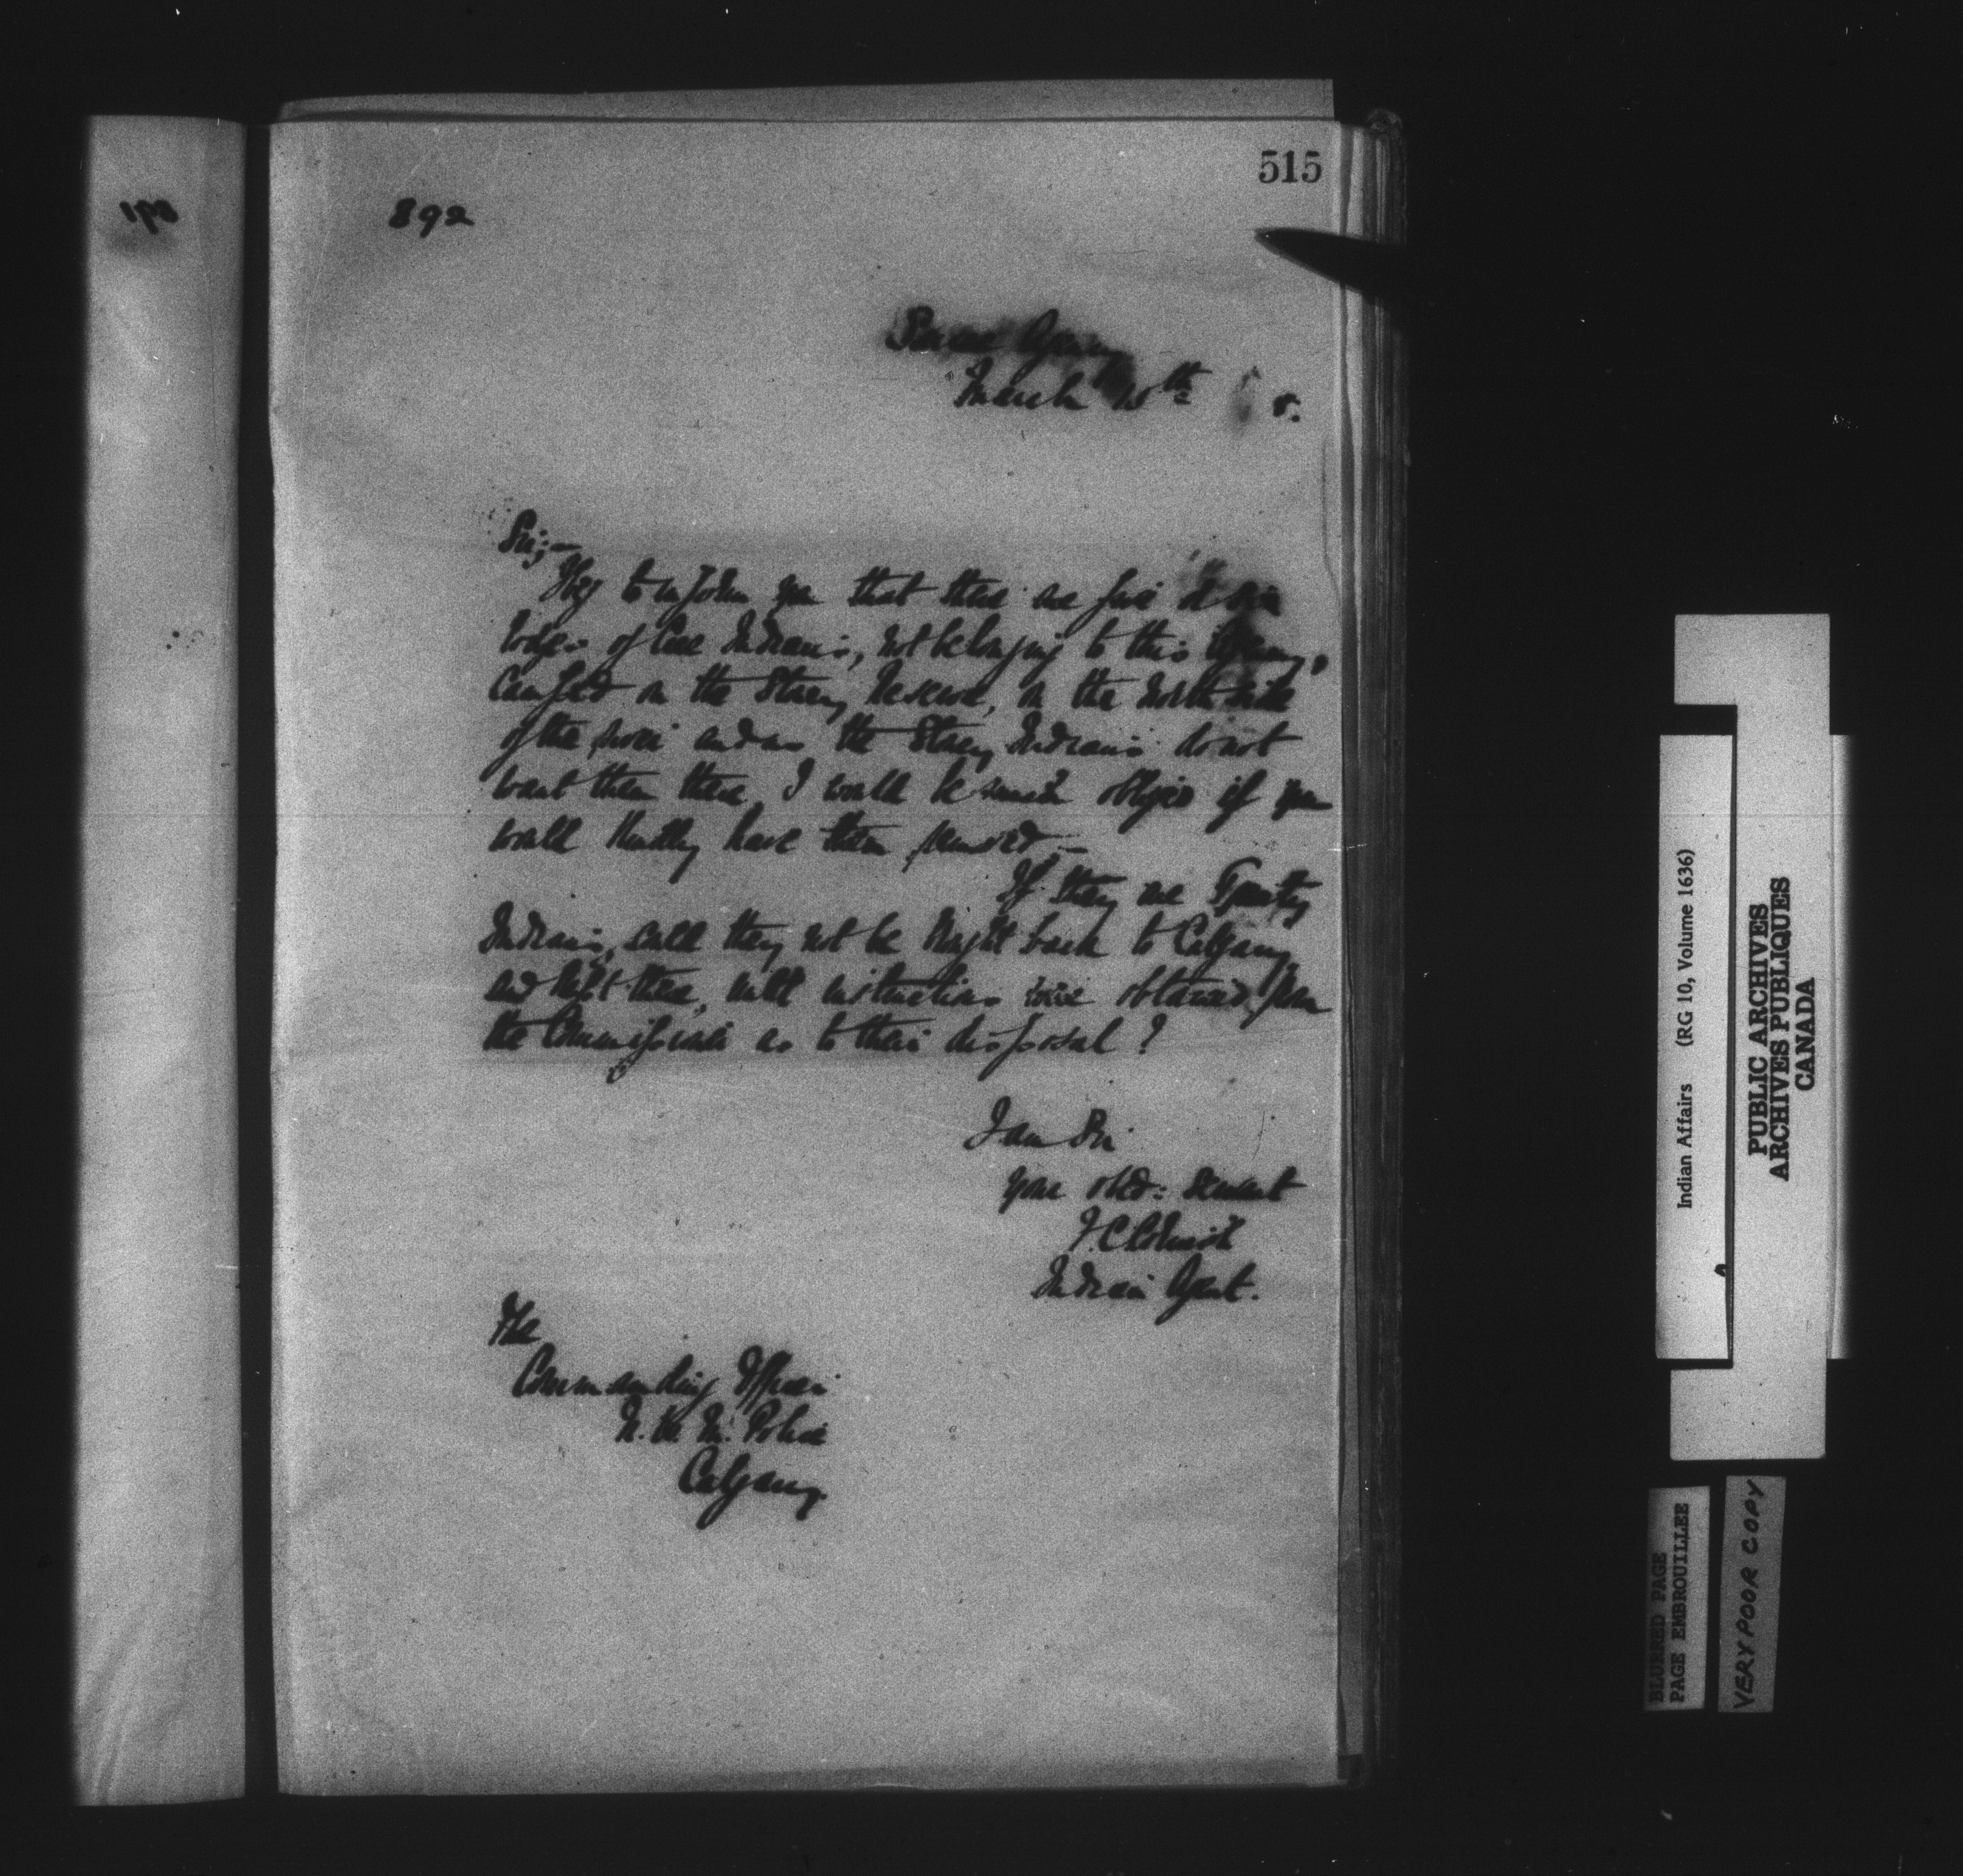 515
892
Sarcee Agency
March 10th 8.
Sir;—
I beg to inform you that there are five or six
lodges of Cree Indians, not belonging to this Agency,
camped on the Stoney Reserve, on the north side
of the river and as the Stoney Indians do not
want them there, I would be much obliged if you
would kindly have them removed—
If they are Treaty
Indians, could they not be brought back to Calgary
and kept there, until instructions were obtained from
the Commissioner as to their disposal?
I am Sir
your obed: servant
Indian Agent.
The
Commanding Officer
N. W. M. Police
Calgary.
Indian Affairs (RG 10, Volume 1636)
PUBLIC ARCHIVES
ARCHIVES PUBLIQUES
CANADA
BLURRED PAGE
PAGE EMBROUILLEE
VERY POOR COPY